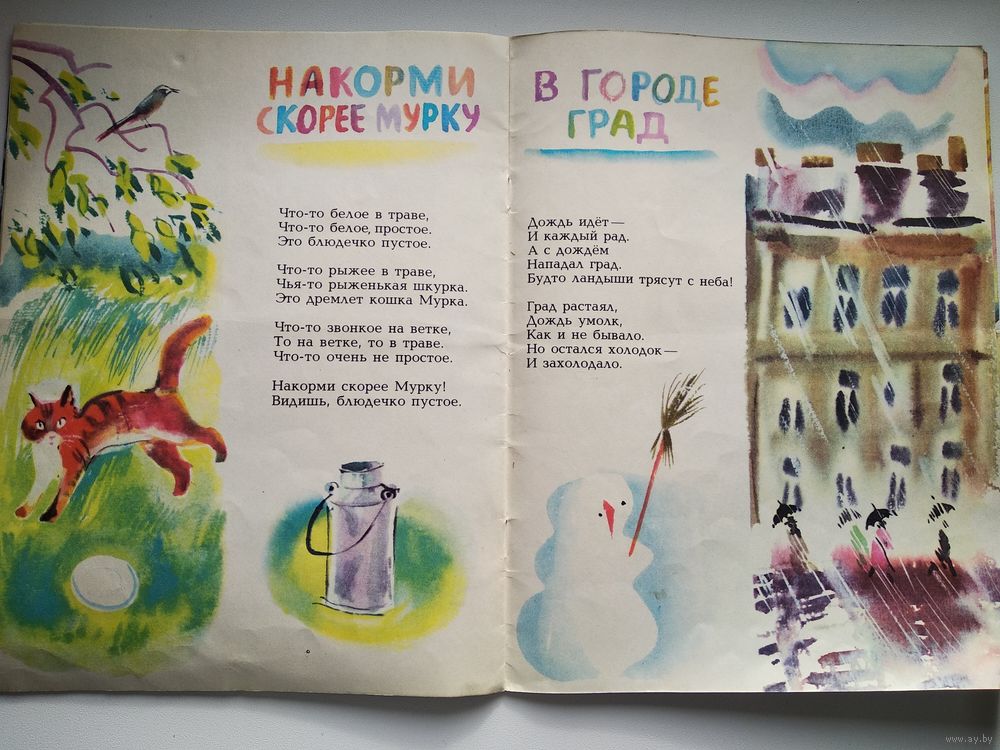 НАКОРМИ
СКОРЕЕ МУРКУ
Что-то белое в траве,
Что-то белое, простое.
Это блюдечко пустое.
Что-то рыжее в траве,
Чья-то рыженькая шкурка.
Это дремлет кошка Мурка.
Что-то звонкое на ветке,
То на ветке, то в траве.
Что-то очень не простое.
Накорми скорее Мурку!
Видишь, блюдечко пустое.
В ГОРОДЕ
ГРАД
Дождь идёт —
И каждый рад.
А с дождём
Нападал град.
Будто ландыши трясут с неба!
Град растаял,
Дождь умолк,
Как и не бывало.
Но остался холодок —
И захолодало.
www.ay.by